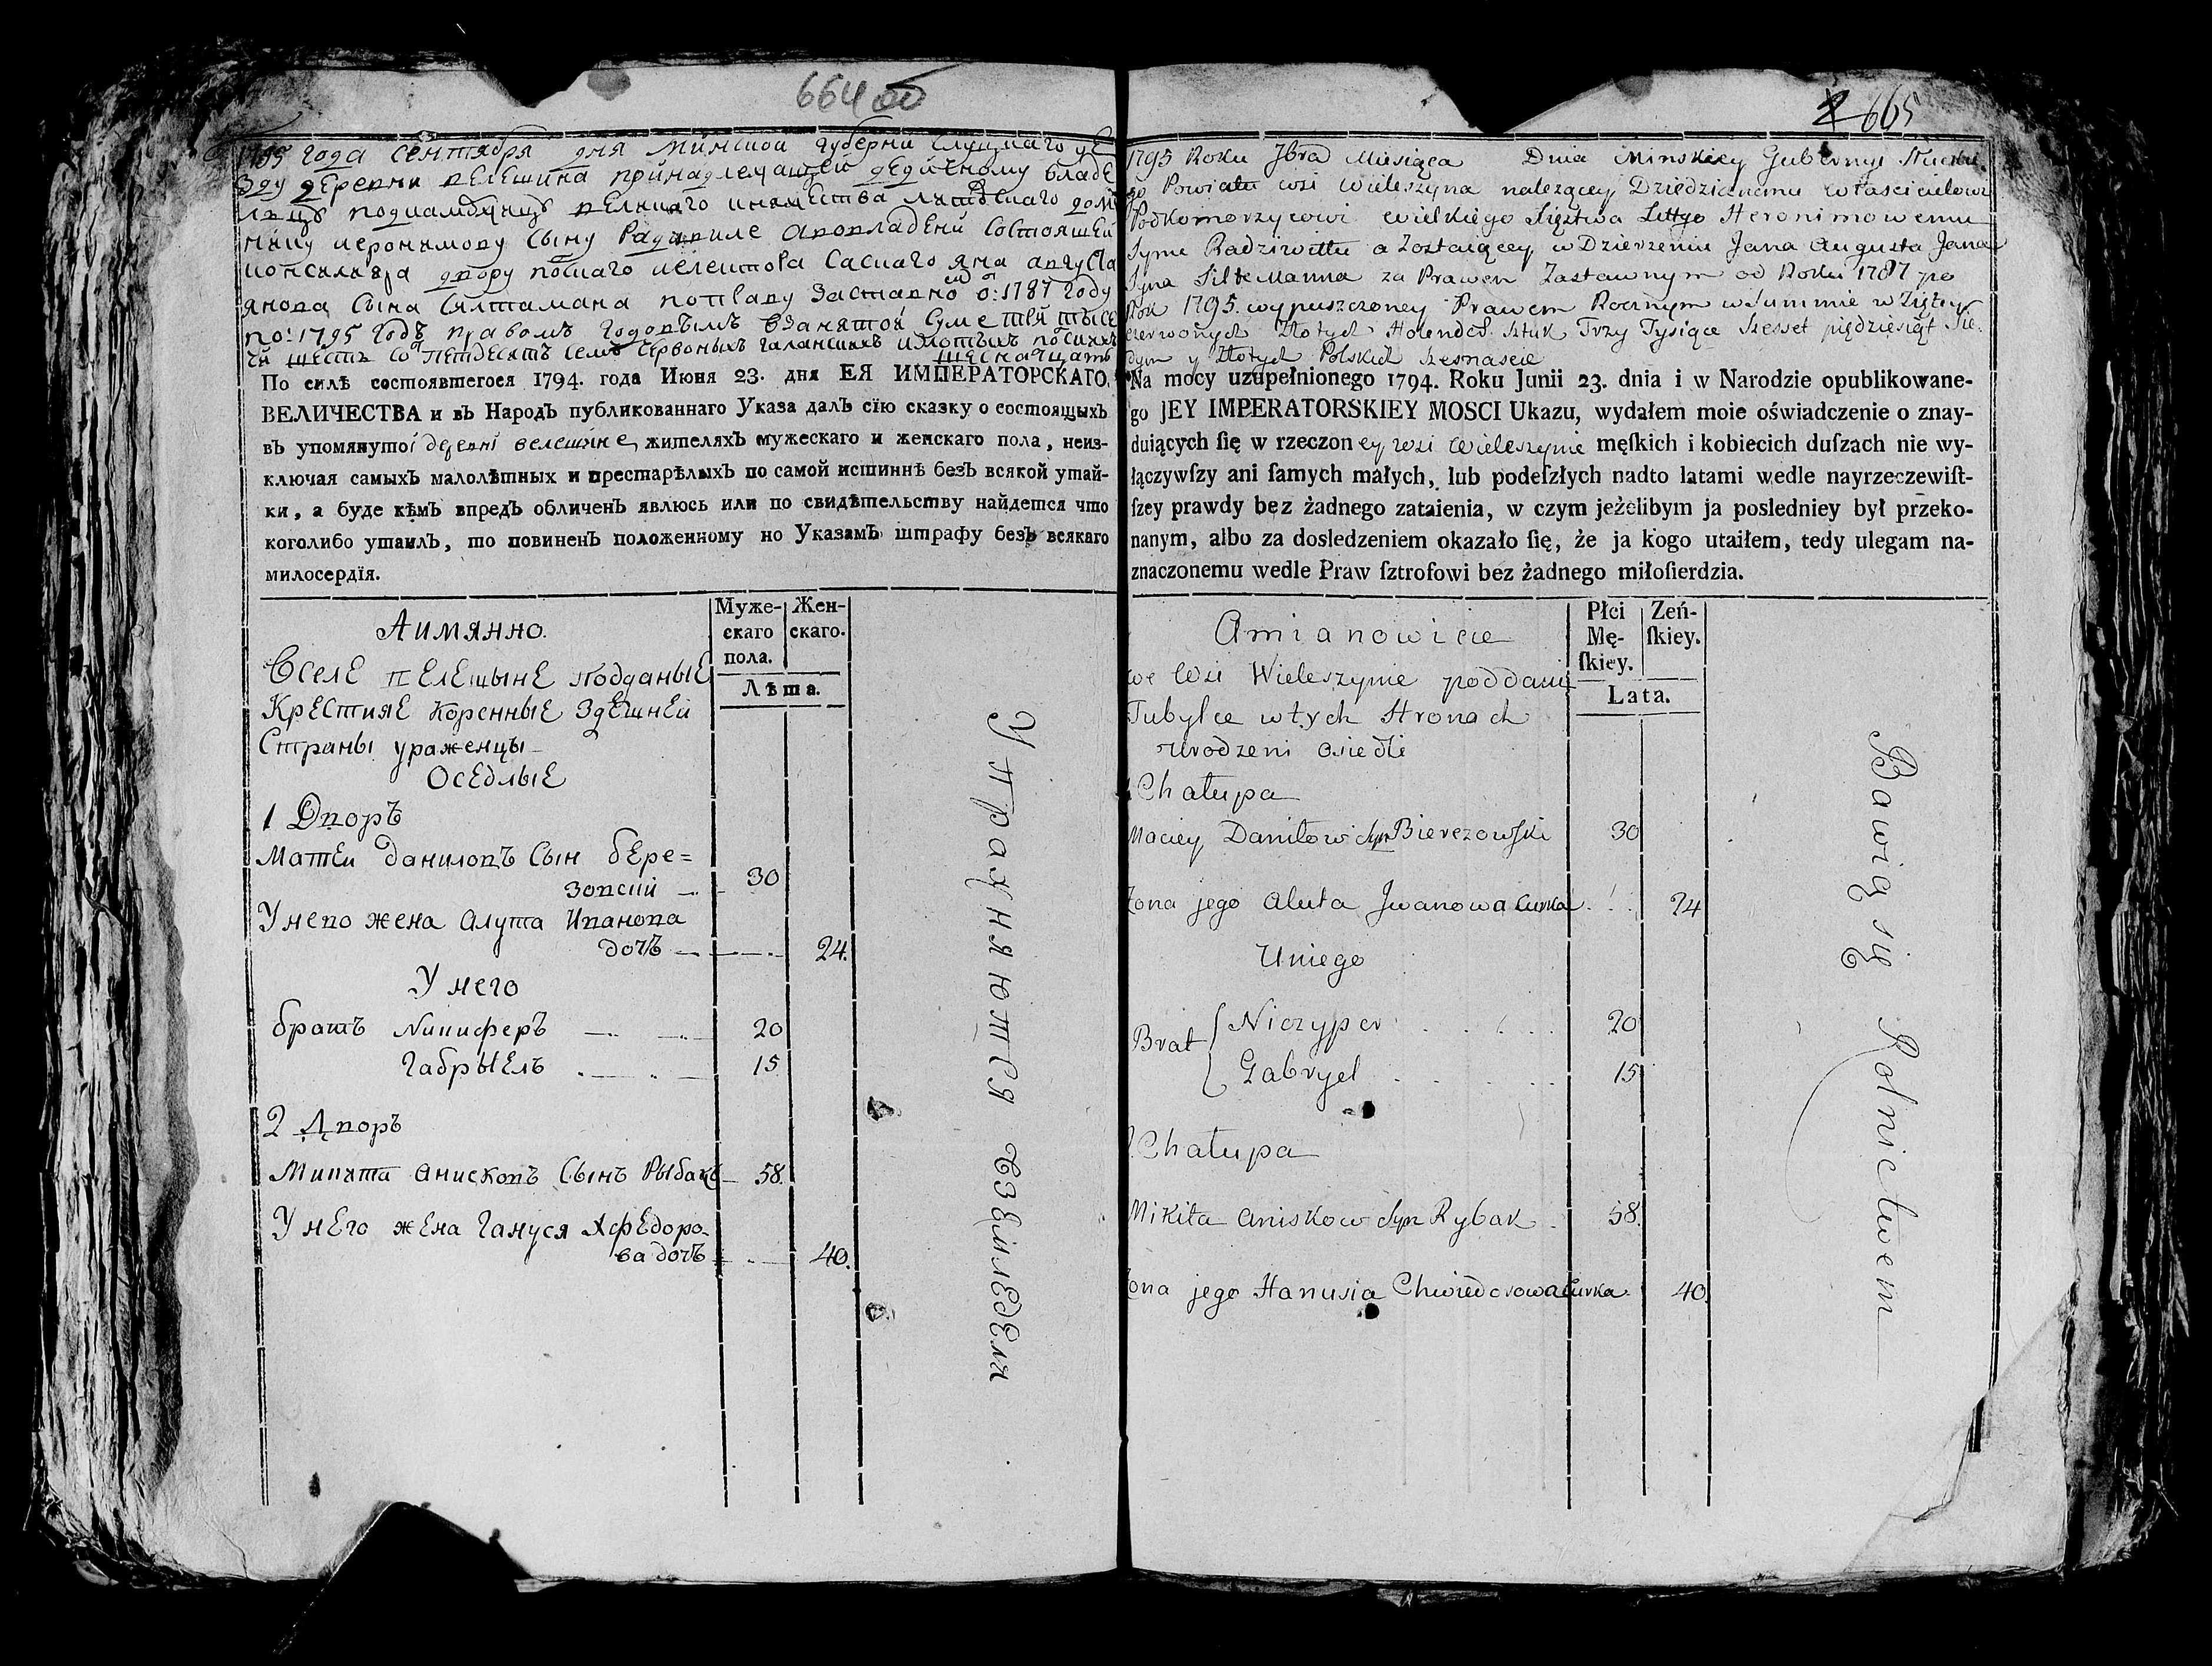 664 об
1795 года сентября дня Минской губерни Слуцкаго уе
зду деревни велешина принадлежащей дедичному владе
янова Сына
по: 1795 годъ правомъ годовымъ взанятой суме три тысе
чи шесть сотъ петдесятъ семь червоныхъ
шеснацать
По силѣ состоявшегося 1794. года Июня 23. дня ЕЯ ИМПЕРАТОРСКАГО
ВЕЛИЧЕСТВА и въ Народъ публикованнаго Указа далъ сїю сказку о состоящыхъ
въ упомянутоi деревнi велешине, жителяхъ мужескаго и женскаго пола, неиз-
ключая самыхъ малолѣтных и престарѣлыхъ по самой истиннѣ безъ всякой утай-
ки, а буде кѣмъ впредъ обличенъ явлюсь или по свидѣтельству найдется что
коголибо утаилъ, то повиненъ положенному но Указамъ штрафу безъ всякаго
милосердїя.
Аимянно.
Муже-
скаго
пола.
Жен-
скаго.
Лѣта.
Вселе велешыне подданые
Крестияе коренные здешней
Страны ураженцы
Оседлые
1 Дворъ
Матеи Даниловъ Сын бере=
зовский 30
У него жена Алута Иванова
дочъ 24.
У него
братъ Никиферъ 20
Габрыель 15
2 Дворъ
Микита Анисковъ Сынъ Рыбакъ 58.
У него жена Гануся Хфедоро-
ва дочъ 40.
Упражняются вземледели
665
1795 Roku 7bra Miesiąca Dnia Minskiey Gubernyi Słuckie
go Powiatu wsi Wieleszyna należącey Dziedzicznemu Własścicielowi
Podkomorzycowi wielkiego Xięztwa Littgo Heronimowemu
Synu Radziwiłłu a Zostaiącey w Dzierzeniu Jana Augusta Jana
Syna Siltemanna za Prawem Zastawnym od Roku 1787 po
Rok 1795. wypuszczoney Prawem Rocznym w Summie wziętey
czerwonych Złotych Holendes. Sztuk Trzy Tysiące Szesset piędziesiąt Sie.
dym y Złotych Polskich szesnascie
Na mocy uzupełnionego 1794. Roku Junii 23. dnia i w Narodzie opublikowane-
go JEY IMPERATORSKIEY MOSCI Ukazu, wydałem moie oświadczenie o znay-
duiących ſię w rzeczoney wsi Wieleszynie męſkich i kobiecich duſzach nie wy-
łączywſzy ani ſamych małych, lub podeſzłych nadto latami wedle nayrzeczewiſt-
ſzey prawdy bez żadnego zataienia, w czym jeżelibym ja posledniey był przeko-
nanym, albo za dosledzeniem okazało ſię, że ja kogo utaiłem, tedy ulegam na-
znaczonemu wedle Praw ſztrofowi bez żadnego miłoſierdzia.
Amianowicie
Płci
Mę-
ſkiey.
Zeń-
ſkiey.
Lata.
we Wsi Wieleszynie poddani
Tubylce wtych Stronach
Urodzeni Osiedli
1 Chałupa
Maciey Daniłow Syn Bierezowſki 30
Zona jego Aluta Jwanowa Curka 24
Uniego
Brat Niczyper 20
Gabryel 15
2 Chałupa
Mikita Aniskow Syn Rybak 58.
Zona jego Hanusia Chwiedorowa Curka 40.
Bawią się Rolnictwem